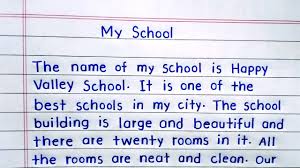 My School
The name of my school is Happy
Valley School. It is one of the
best schools in my city. The school
building is large and beautiful and
there are twenty rooms in it. All
the rooms are neat and clean. Our